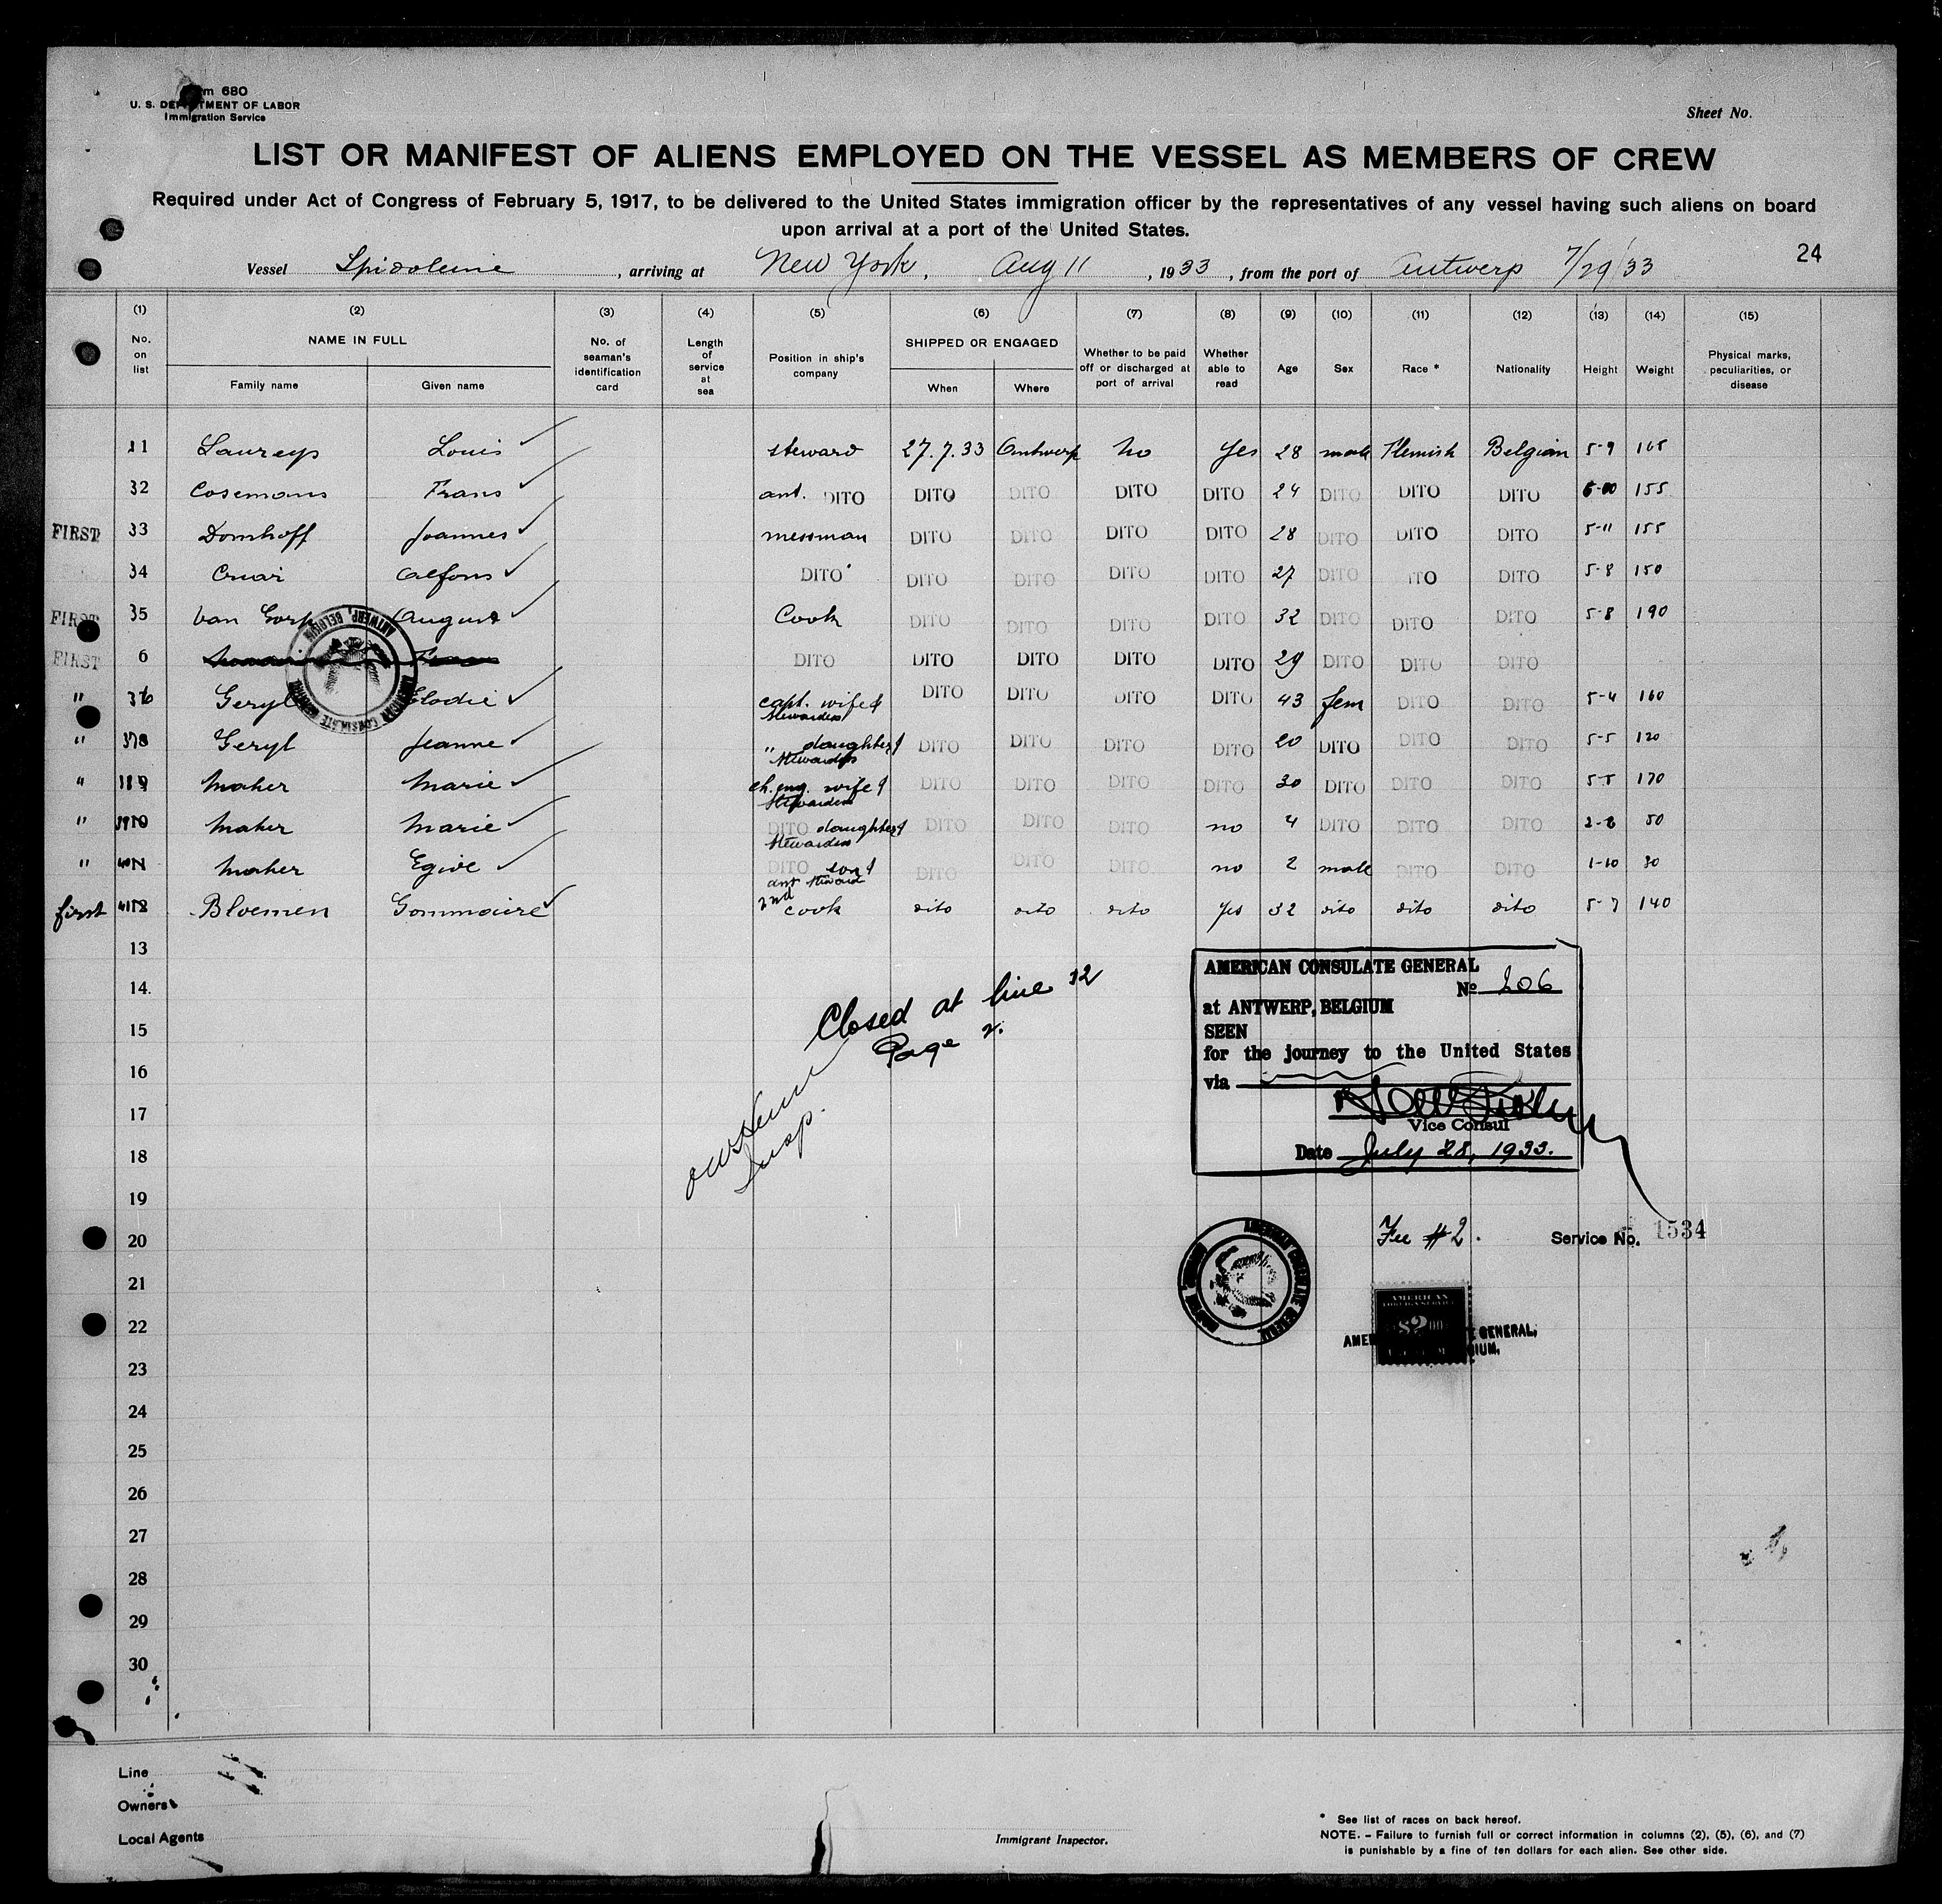 Form 680
U. S. DEPARTMENT OF LABOR
Immigration Service
Sheet No.
LIST OR MANIFEST OF ALIENS EMPLOYED ON THE VESSEL AS MEMBERS OF CREW
Required under Act of Congress of February 5, 1917, to be delivered to the United States immigration officer by the representatives of any vessel having such aliens on board
upon arrival at a port of the United States.
24
Vessel Spidoleine, arriving at New York, Aug 11, 1933, from the port of Antwerp 7/29/33
(1) (2) (3) (4) (5) (6) (7) (8) (9) (10) (11) (12) (13) (14) (15)
No. on list NAME IN FULL Family name Given name No. of seaman's identification card Length of service at sea Position in ship's company SHIPPED OR ENGAGED When Where Whether to be paid off or discharged at port of arrival Whether able to read Age Sex Race * Nationality Height Weight Physical marks, peculiarities, or disease
31 Laureys Louis steward 27.7.33 Antwerp No Yes 28 male Flemish Belgian 5-9 165
32 Cosemans Frans ant. DITO DITO DITO DITO DITO 24 DITO DITO DITO 155
FIRST 33 Domhoff Joannes messman DITO DITO DITO DITO 28 DITO DITO DITO 5-11 155
34 Alfons DITO DITO DITO DITO DITO 27 DITO DITO DITO 5-8 150
FIRST 35 Van Gorp August Cook DITO DITO DITO DITO 32 DITO DITO DITO 5-8 190
FIRST 6 DITO DITO DITO DITO DITO 29 DITO DITO DITO
" 36 Geryl Elodie capt. wife & stewardess DITO DITO DITO DITO 43 fem DITO DITO 5-4 160
" 37 Geryl Jeanne " daughter & stewardess DITO DITO DITO DITO 20 DITO DITO DITO 5-5 120
" 38 Maher Marie ch. eng. wife & stewardess DITO DITO DITO DITO 30 DITO DITO DITO 5-5 170
" 39 Maher Marie DITO daughter & stewardess DITO DITO DITO no 4 DITO DITO DITO 2-8 50
" 40 Maher DITO son & ant steward DITO DITO DITO no 2 male DITO DITO 1-10 30
first 41 Bloemen Gommaire 2nd cook dito dito dito Yes 32 dito dito dito 5-7 140
13
14
15
16
17
18
19
20
21
22
23
24
25
26
27
28
29
30
ANTWERP, BELGIUM
AMERICAN CONSULATE GENERAL
Closed at line 12
Page 2.
Insp.
AMERICAN CONSULATE GENERAL
No 206
at ANTWERP, BELGIUM
SEEN
for the journey to the United States
via
Vice Consul
Date July 28, 1933.
Fee #2. Service No. 1534
AMERICAN CONSULATE GENERAL
AMERICAN
FOREIGN SERVICE
$2.00
GENERAL,
Line
Owners
Local Agents
Immigrant Inspector.
* See list of races on back hereof.
NOTE. – Failure to furnish full or correct information in columns (2), (5), (6), and (7)
is punishable by a fine of ten dollars for each alien. See other side.